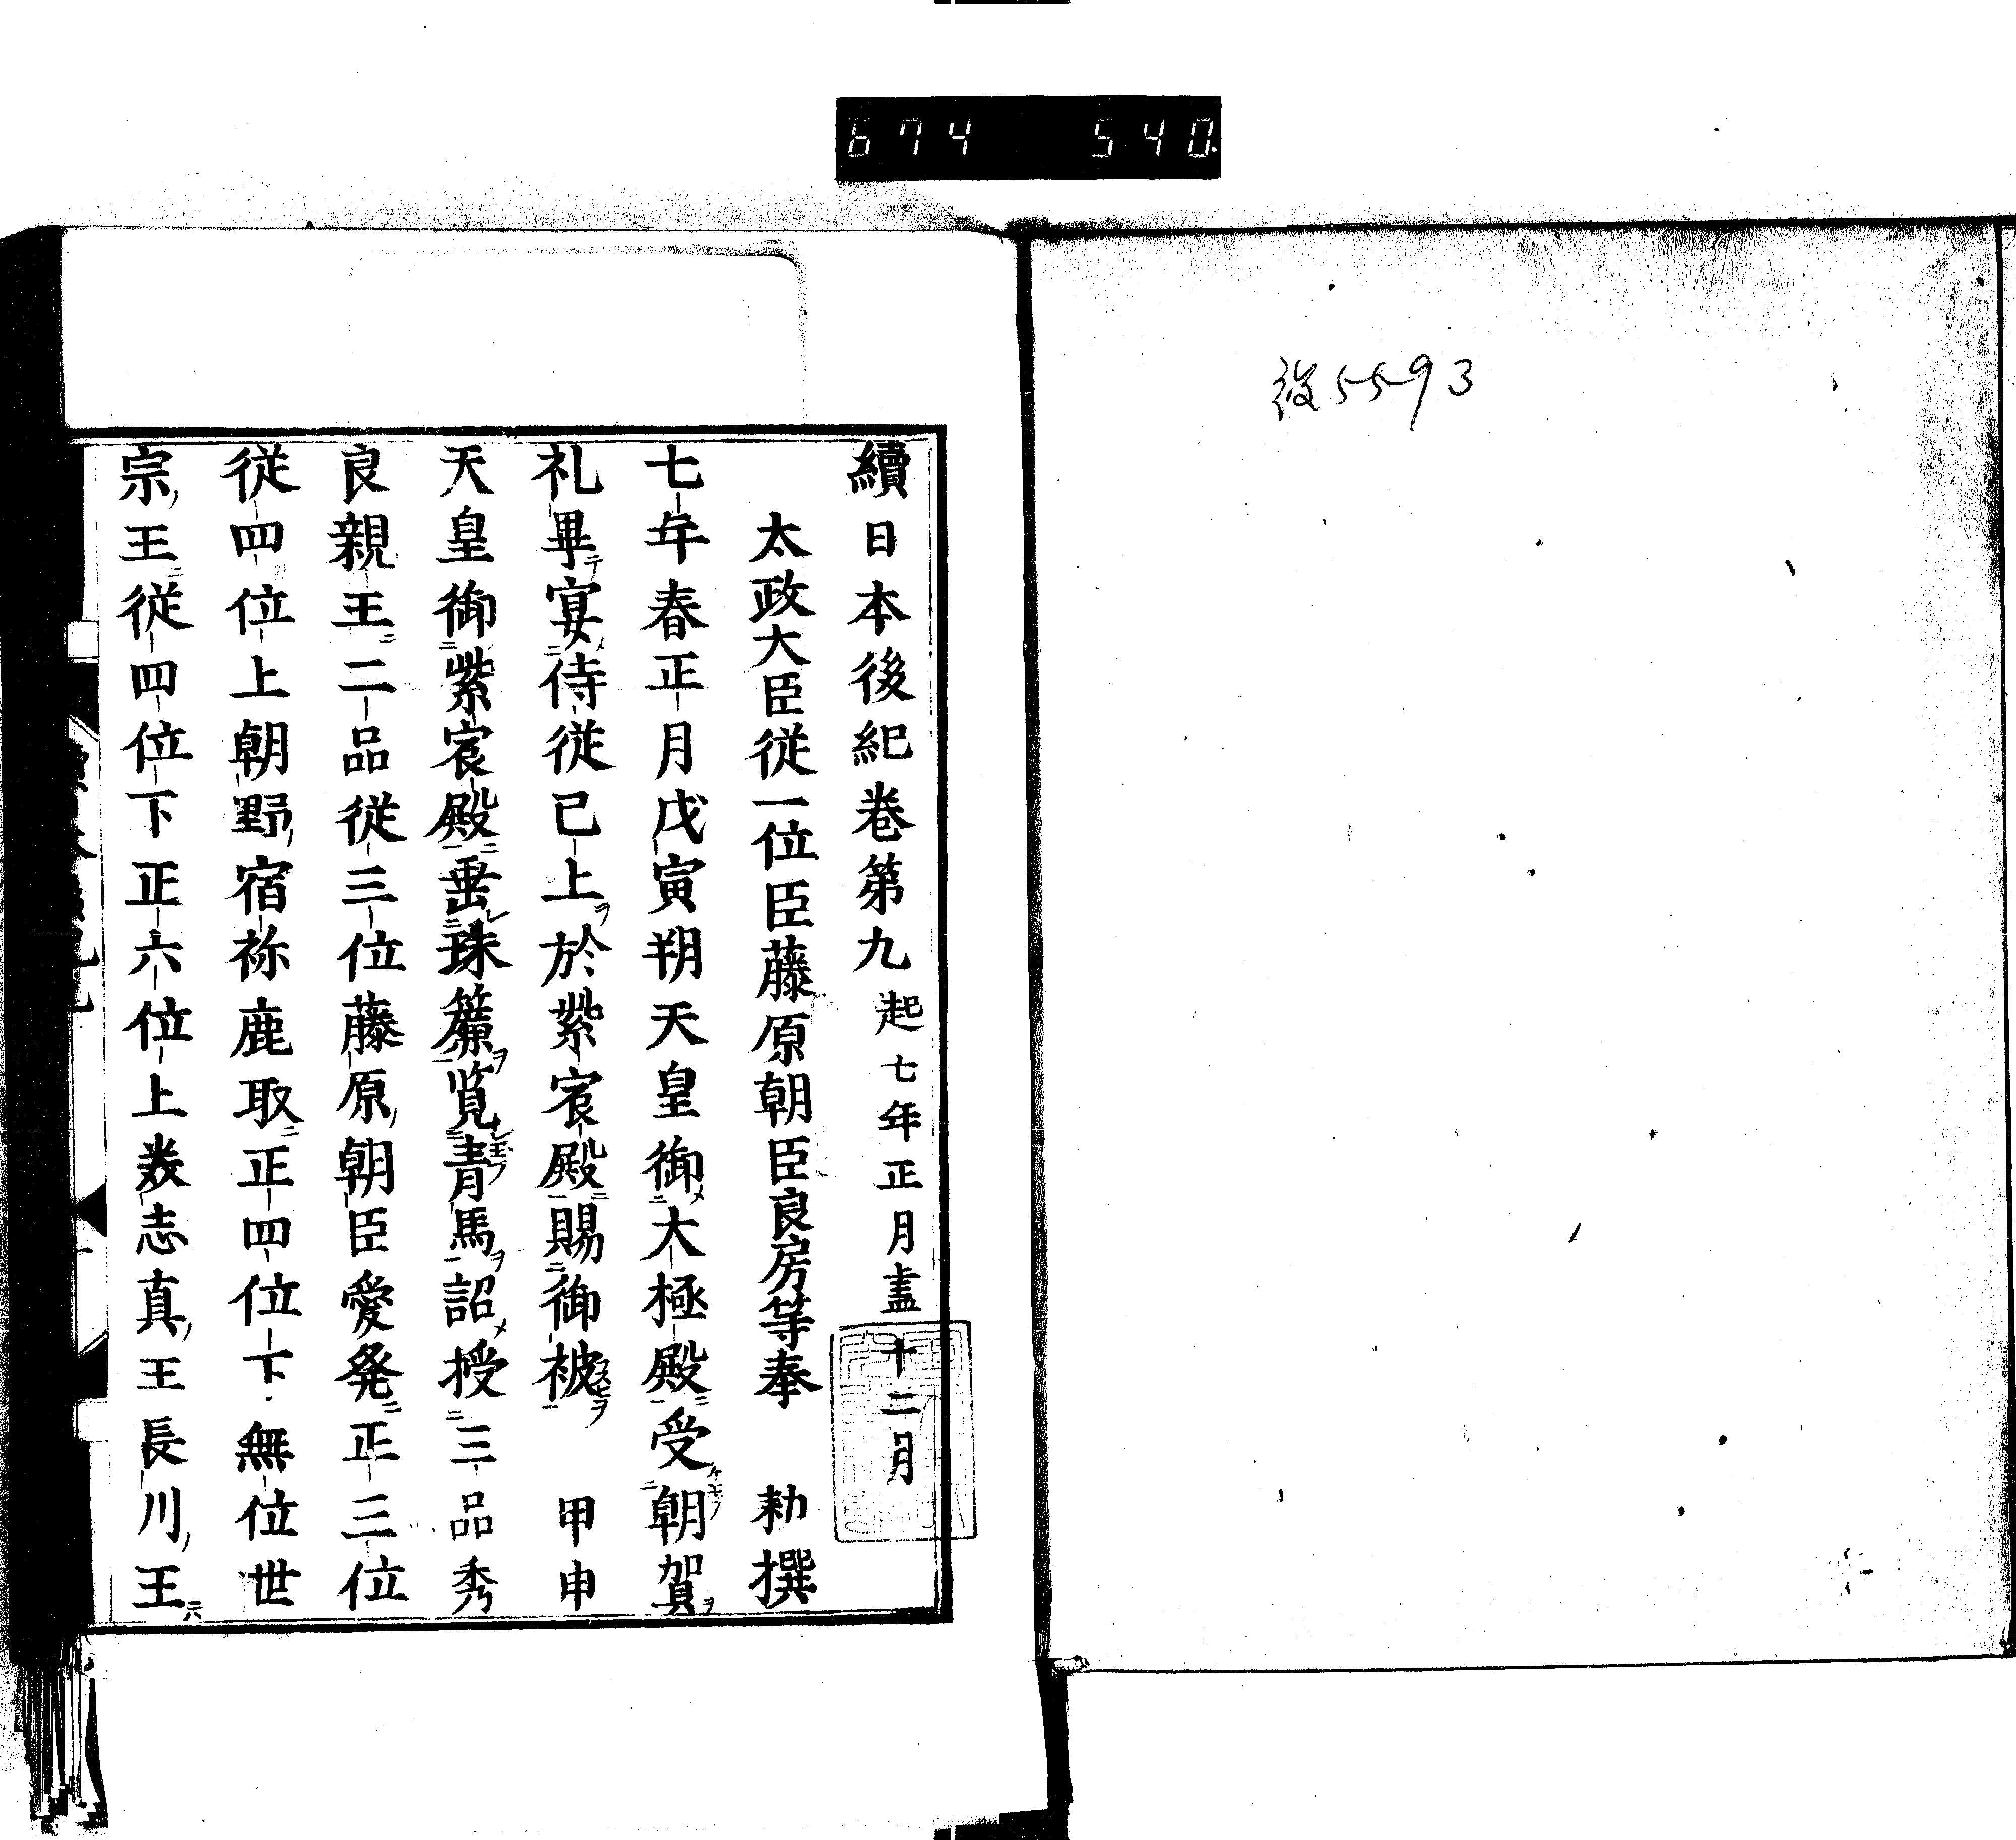 674 540
後5593
續日本後紀卷第九 起七年正月盡十二月
太政大臣從一位臣藤原朝臣良房等奉 勅撰
七年春正月戊寅朔天皇御大極殿受朝賀
礼畢宴侍從已上於紫宸殿賜御被 甲申
天皇御紫宸殿垂珠簾覧青馬詔授三品秀
良親王二品従三位藤原朝臣愛発正三位
従四位上朝野宿祢鹿取正四位下無位世
宗王従四位下正六位上美志真王長川王